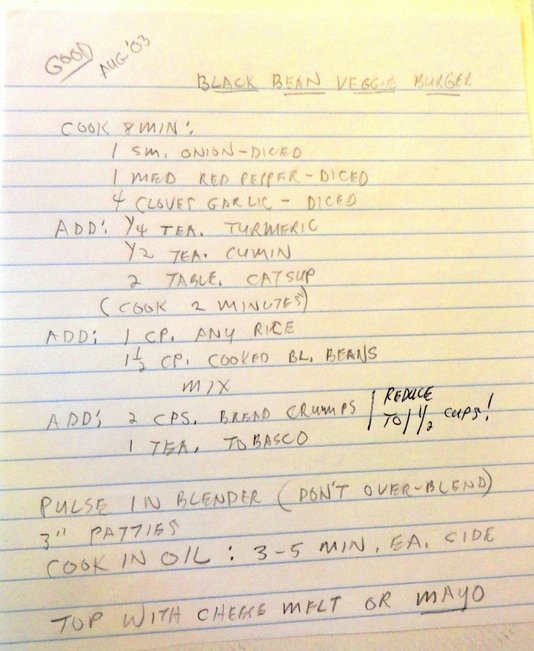 GOOD
AUG '03
BLACK BEAN VEGGIE BURGER
COOK 8 MIN:
1 SM. ONION-DICED
1 MED RED PEPPER-DICED
4 CLOVES GARLIC - DICED
ADD: 1/4 TEA. TURMERIC
1/2 TEA. CUMIN
2 TABLE. CATSUP
(COOK 2 MINUTES)
ADD: 1 CP. ANY RICE
1 1/2 CP. COOKED BL. BEANS
MIX
ADD: 2 CPS. BREAD CRUMPS | REDUCE
TO 1 1/2 CUPS!
1 TEA. TOBASCO
PULSE IN BLENDER (DON'T OVER-BLEND)
3" PATTIES
COOK IN OIL: 3-5 MIN. EA. SIDE
TOP WITH CHEESE MELT OR MAYO